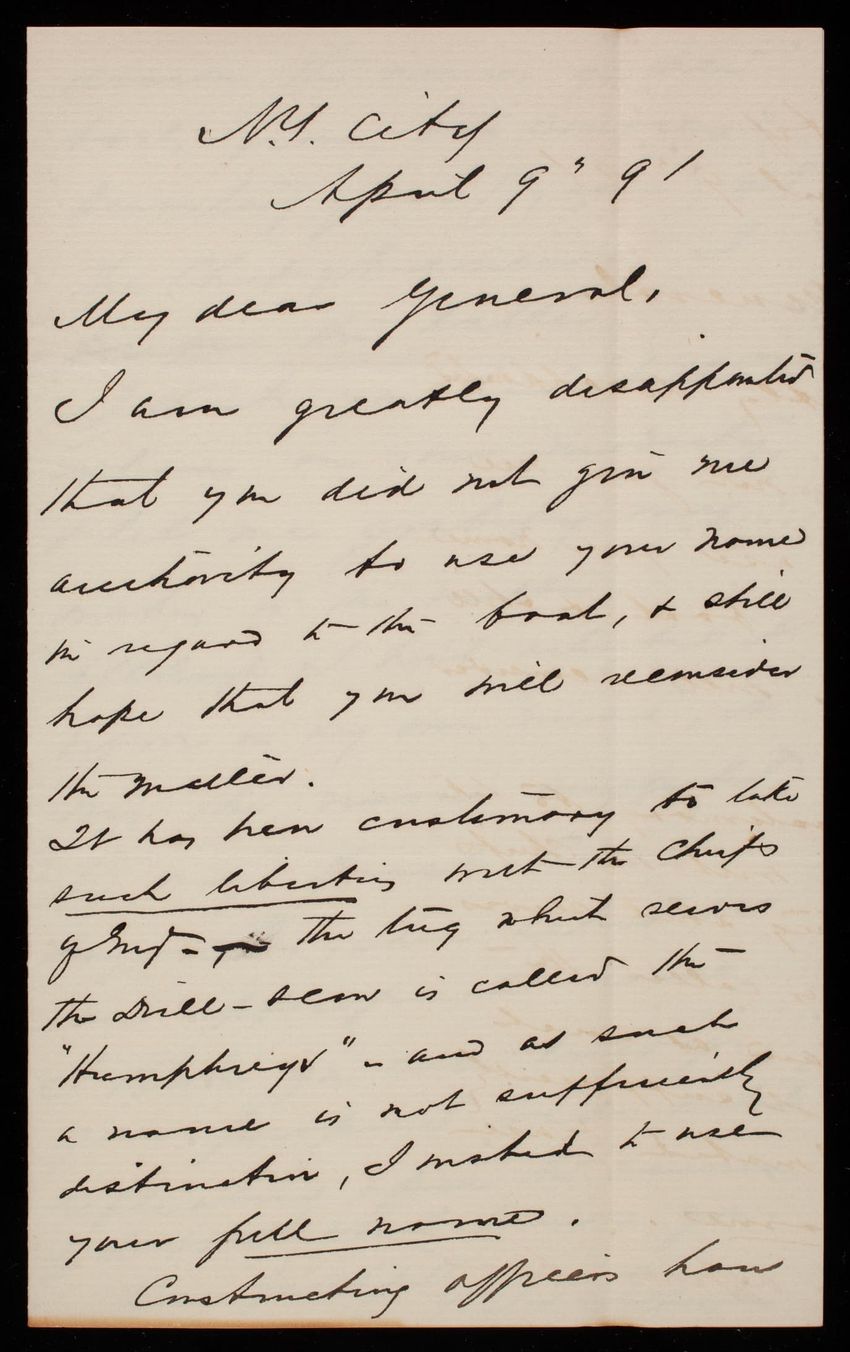 N.Y. City
April 9" 91
My dear General,
I am greatly disappointed
that you did not give me
authority to use your name
in regard to the boat, & still
hope that you will reconsider
the matter.
It has been customary to take
such liberties with the Chiefs
of Engrs - the tug which serves
the Drill-scow is called the
"Humphreys" - and as such
a name is not sufficiently
distinctive, I wished to use
your full name.
Constructing officers have